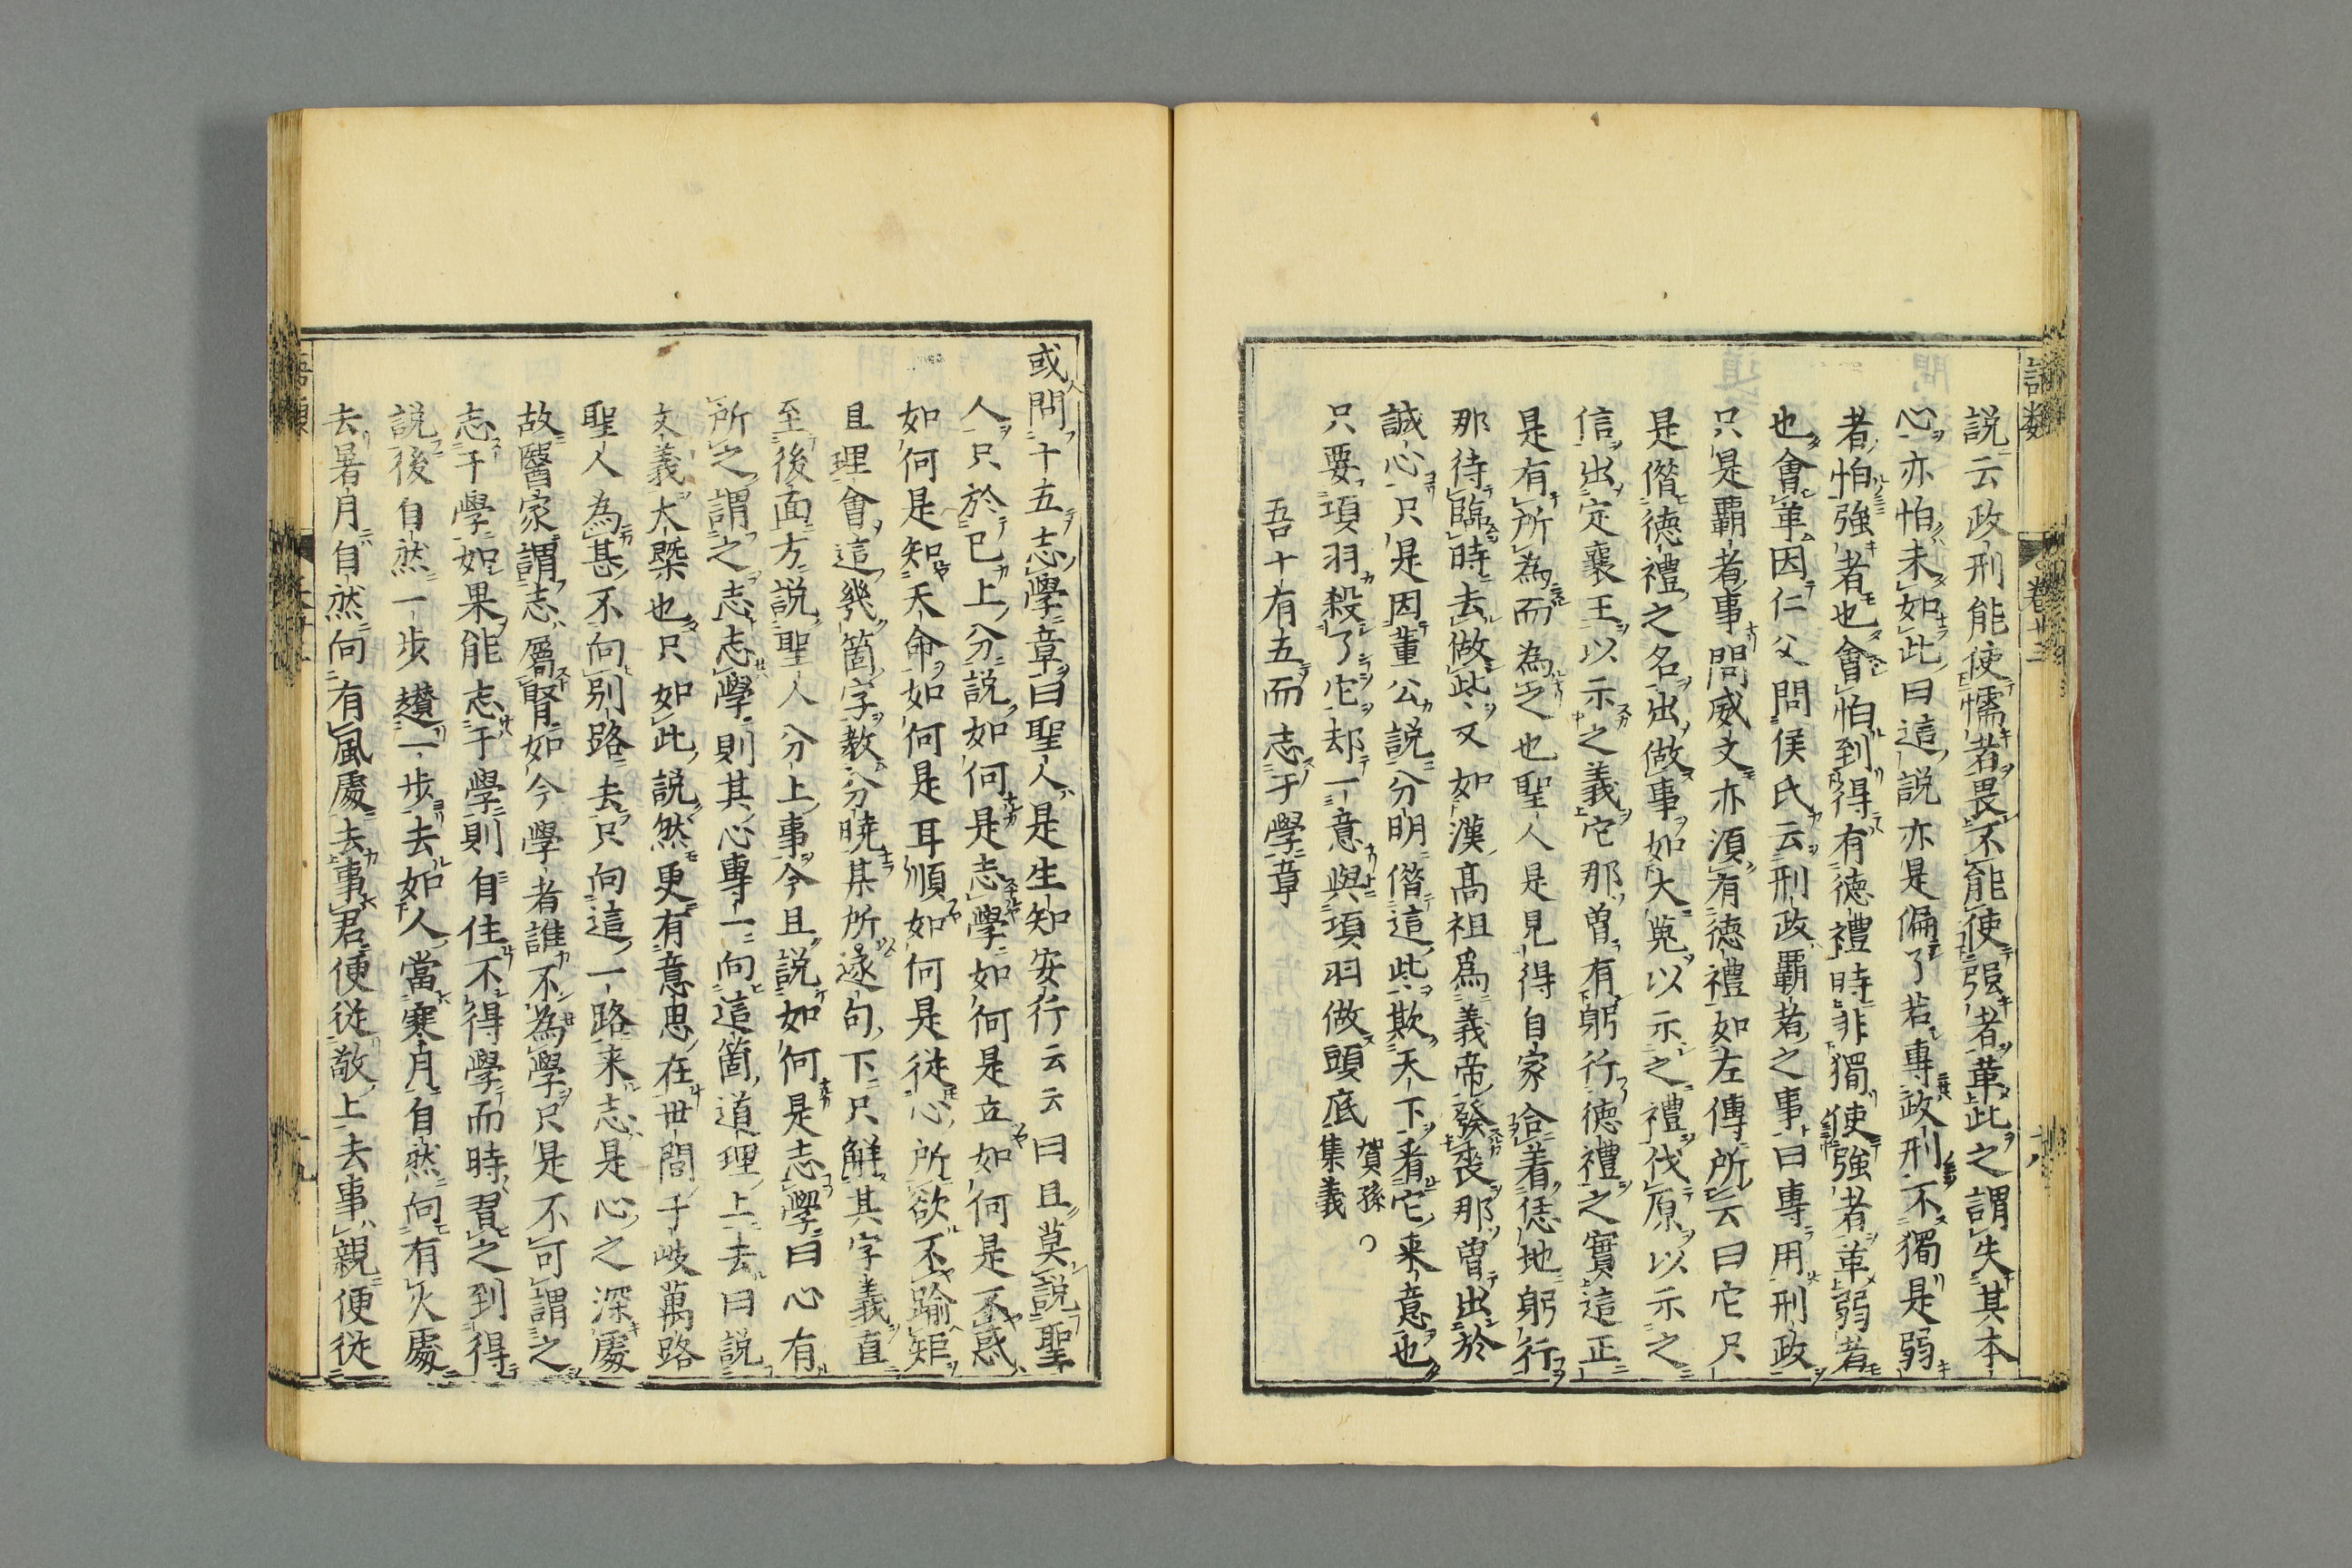 語類
卷廿三
十八
説云政刑能使懦者畏不能使强者革此之謂失其本
心亦怕未如此曰這説亦是偏了若專政刑不獨是弱
者怕強者也會怕到得有德禮時非獨使強者革弱者
也會革因仁父問侯氏云刑政覇者之事曰專用刑政
只是覇者事問威文亦須有德禮如左傳所云曰它只
是僭德禮之名出做事如大蒐以示之禮伐原以示之
信出定襄王以示之義它那曾有躬行德禮之實這正
是有所為而為之也聖人是見得自家合着恁地躬行
那待臨時去做些又如漢髙祖爲義帝發喪那曾出於
誠心只是因董公説分明僭這些欺天下看它来意也
只要項羽殺了它却一意與項羽做頭底 賀孫○集義
吾十有五而志于學章
或問十五志學章曰聖人是生知安行云云曰且莫説聖
人只於已上分説如何是志學如何是立如何是不惑
如何是知天命如何是耳順如何是從心所欲不踰矩
且理會這幾箇字教分曉某所逐句下只解其字義直
至後面方説聖人分上事今且説如何是志學曰心有
所之謂之志志學則其心專一向這箇道理上去曰説
文義大槩也只如此説然更有意思在世間千岐萬路
聖人為甚不向別路去只向這一路来志是心之深處
故醫家謂志屬腎如今學者誰不為學只是不可謂之
志于學如果能志于學則自住不得學而時習之到得
説後自然一步趲一步去如人當寒月自然向有火處
去暑月自然向有風處去事君便從敬上去事親便從